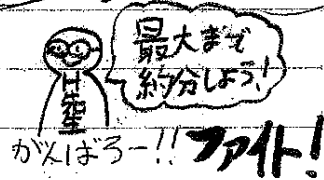 最大まで
約分しよう!
がんばろー!! ファイト!